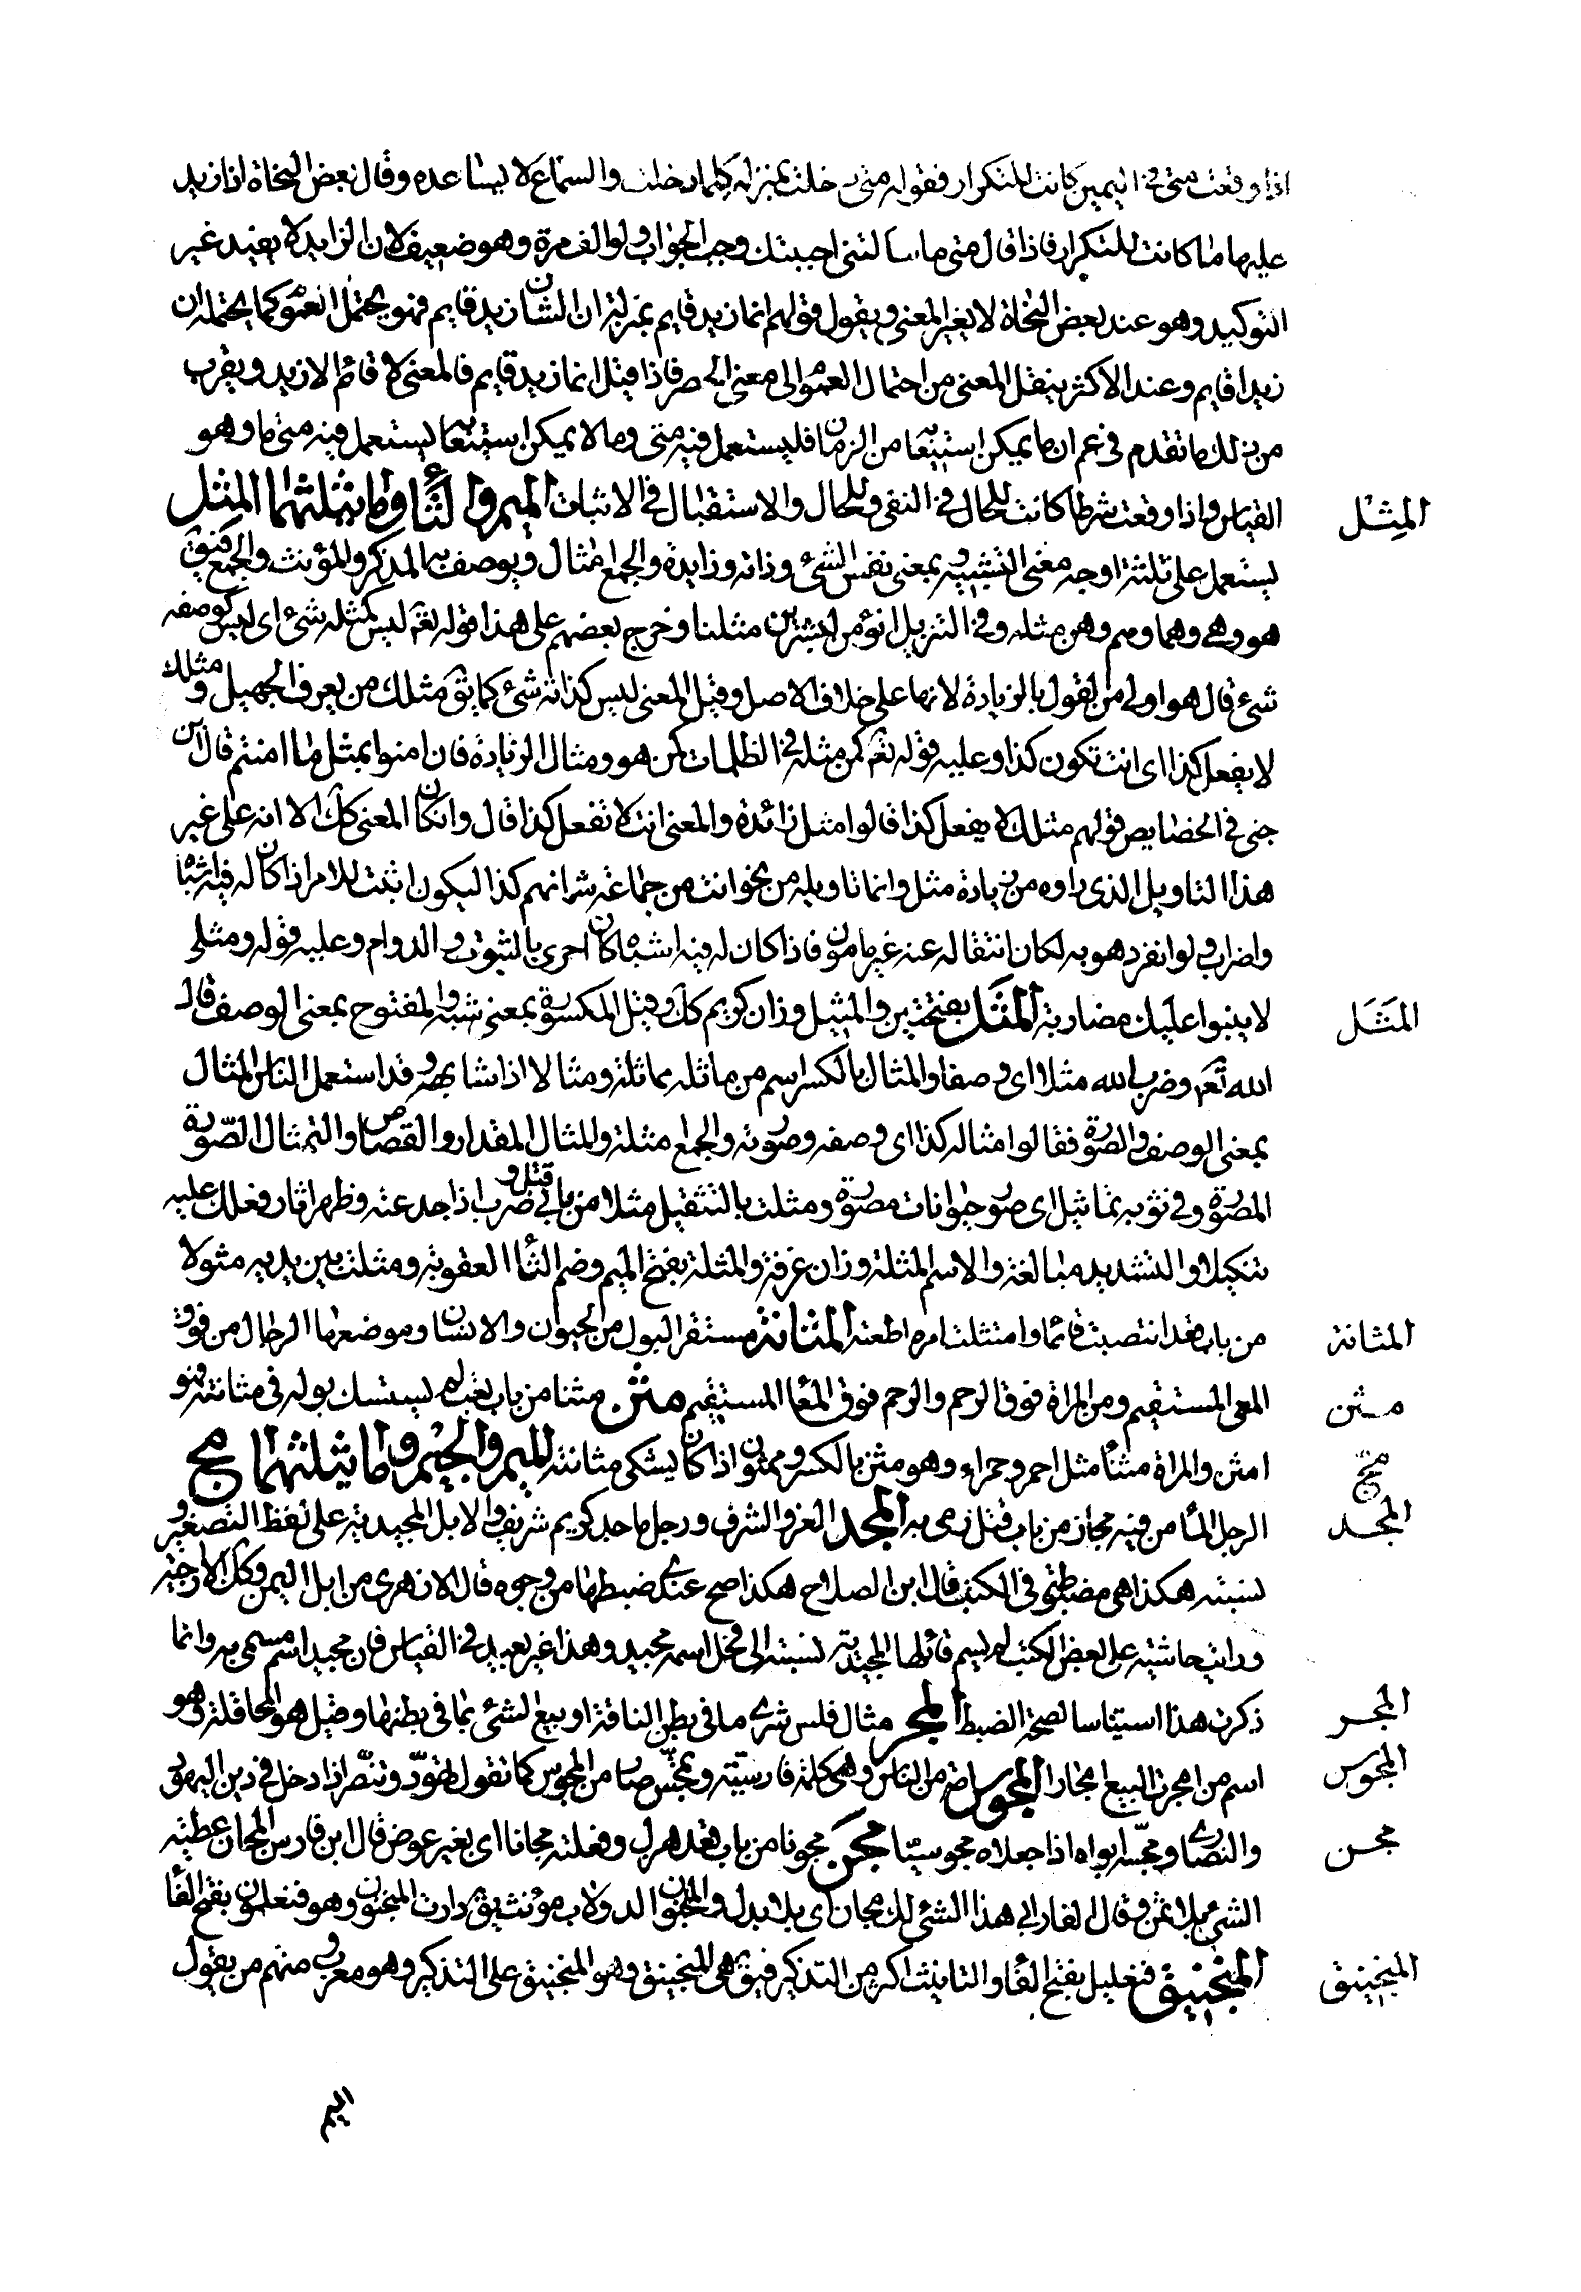 اذا وقعت متى في اليمين كانت للتكرار فقوله متى دخلت بمنزلة كلما دخلت والسماع لا يساعده وقال بعض النحاة اذا زيد
عليها ما كانت للتكرار فاذا قال متى ما سالتنى اجبتك وجب الجواب ولو الف مرة وهو ضعيف لان الزايد لا يفيد غير
التوكيد وهو عند بعض النحاة لا يغير المعنى ويقول قولهم انما زيد قايم بمنزلة ان الشان زيد قايم فهو يحتمل العموم كما يحتمله ان
زيدا قايم وعند الاكثر ينقل المعنى من احتمال العموم الى معنى الحصر فاذا قيل انما زيد قايم فالمعنى لا قائم الا زيد ويقرب
من ذلك ما تقدم في عم ان ما يمكن استيعابه من الزمان فليستعمل فيه متى وما لا يمكن استيعابه يستعمل فيه متى ما وهو
المِثْل
القياس واذا وقعت شرطا كانت للحال في النفى وللحال والاستقبال في الاثبات الميم والثأ وما يثلثهما المِثل
يستعمل على ثلثة اوجه معنى التشبيه وبمعنى نفس الشئ وذاته وزايدة والجمع امثال ويوصف به المذكر والمؤنث والجمع فيق
هو وهى وهما وهم وهن مثله وفي التنزيل انؤمن لبشرين مثلنا وخرج بعضهم على هذا قوله تعم ليس كمثله شئ اى ليس كوصفه
شئ قال هو اولى من القول بالزيادة لانها على خلاف الاصل وقيل المعنى ليس كذاته شئ كما يق مثلك من يعرف الجميل ومثلك
لا يفعل كذا اى انت تكون كذا وعليه قوله تعم كمن مثله في الظلمات كمن هو ومثال الزيادة فان امنوا بمثل ما امنتم قال ابن
جنى في الخصايص قولهم مثلك لا يفعل كذا قالوا مثل زائدة والمعنى انت لا تفعل كذا قال وان كان المعنى كك الا انه على غير
هذا التاويل الذى راوه من زيادة مثل وانما تاويله من نحو انت من جماعة شانهم كذا ليكون اثبت للامر اذا كان له فيه اشباه
واضراب ولو انفرد هو به لكان انتقاله عنه غير مامون فاذا كان له فيه اشباه كان احرى بالثبوت والدوام وعليه قوله ومثلى
المَثَل
لا ينبوا عليك مضاربه المَثَل بفتحتين والمثيل وزان كريم كك وقيل المكسور بمعنى شبه والمفتوح بمعنى الوصف قال
الله تعم وضرب الله مثلا اى وصفا والمثال بالكسر اسم من ماثله مماثلة ومثالا اذا شابهه وقد استعمل الناس المثال
بمعنى الوصف والصورة فقالوا مثاله كذا اى وصفه وصورته والجمع امثلة والمثال المقدار والقصاص والتمثال الصّورة
المصورة وفي ثوبه تماثيل اى صور حيوانات مصورة ومثلت بالتثقيل مثلا من بابى قتل وضرب اذا جدعته وظهر اثار فعلك عليه
تنكيلا والتشديد مبالغة والاسم المثلة وزان غرفة والمثلة بفتح الميم وضم الثأ العقوبة ومثلت بين يديه مثولا
المثانة
من باب قعد انتصبت قائما وامتثلت امره اطعته المثانة مستقر البول من الحيوان والانسان وموضعها الرجال من فوق
مثن
المعى المستقيم ومن المراة فوق الرحم والرحم فوق المعا المستقيم مثن مثنا من باب تعب لم يستمسك بوله في مثانته فهو
مجّ
امثن والمراة مثنأ مثل احمر وحمراء وهو مثن بالكسر وممثون اذا كان يشتكى مثانته الميم والجيم وما يثلثهما مج
المجد
الرجل المأ من فيه مجا من باب قتل رمى به المجد العز والشرف ورجل ماجد كريم شريف والابل المجيدية على لفظ التصغير و
نسبته هكذا هى مضبوطة في الكتب قال ابن الصلاح هكذا صح عندى ضبطها من وجوه قال الازهرى من ابل اليمن وكك الارحبية
ورايت حاشية على بعض الكتب لم يسم قائلها المجيدية نسبة الى فحل اسمه مجيد وهذا غير بعيد في القياس فان مجيدا اسم مسمى به وانما
المجر
ذكرت هذا استيناسا لصحة الضبط المجر مثال فلس شرى ما في بطن الناقة او بيع الشئ بما في بطنها وقيل هو المحاقلة وهو
المجوس
اسم من امجرت البيع امجارا المجوس امة من الناس وهى كلمة فارسيّة وتمجّس صار من المجوس كما تقول تهوّد وتنصّر اذا دخل في دين اليهود
مجن
والنصارى ومجّسه ابواه اذا جعلاه مجوسيّا مجن مجونا من باب قعد هزل وفعلته مجانا اى بغير عوض قال ابن فارس المجان عطية
الشئ بلا ثمن وقال الفارابى هذا الشئ لك مجان اى بلا بدل والمنجنون الدولاب مونث يق دارت المنجنون وهو فنعلول بفتح الفأ
المنجنيق
المنجنيق فنعليل بفتح الفأ والتانيث اكثر من التذكير فيق هى المنجنيق وهو المنجنيق على التذكير وهو معرب ومنهم من يقول
الميم